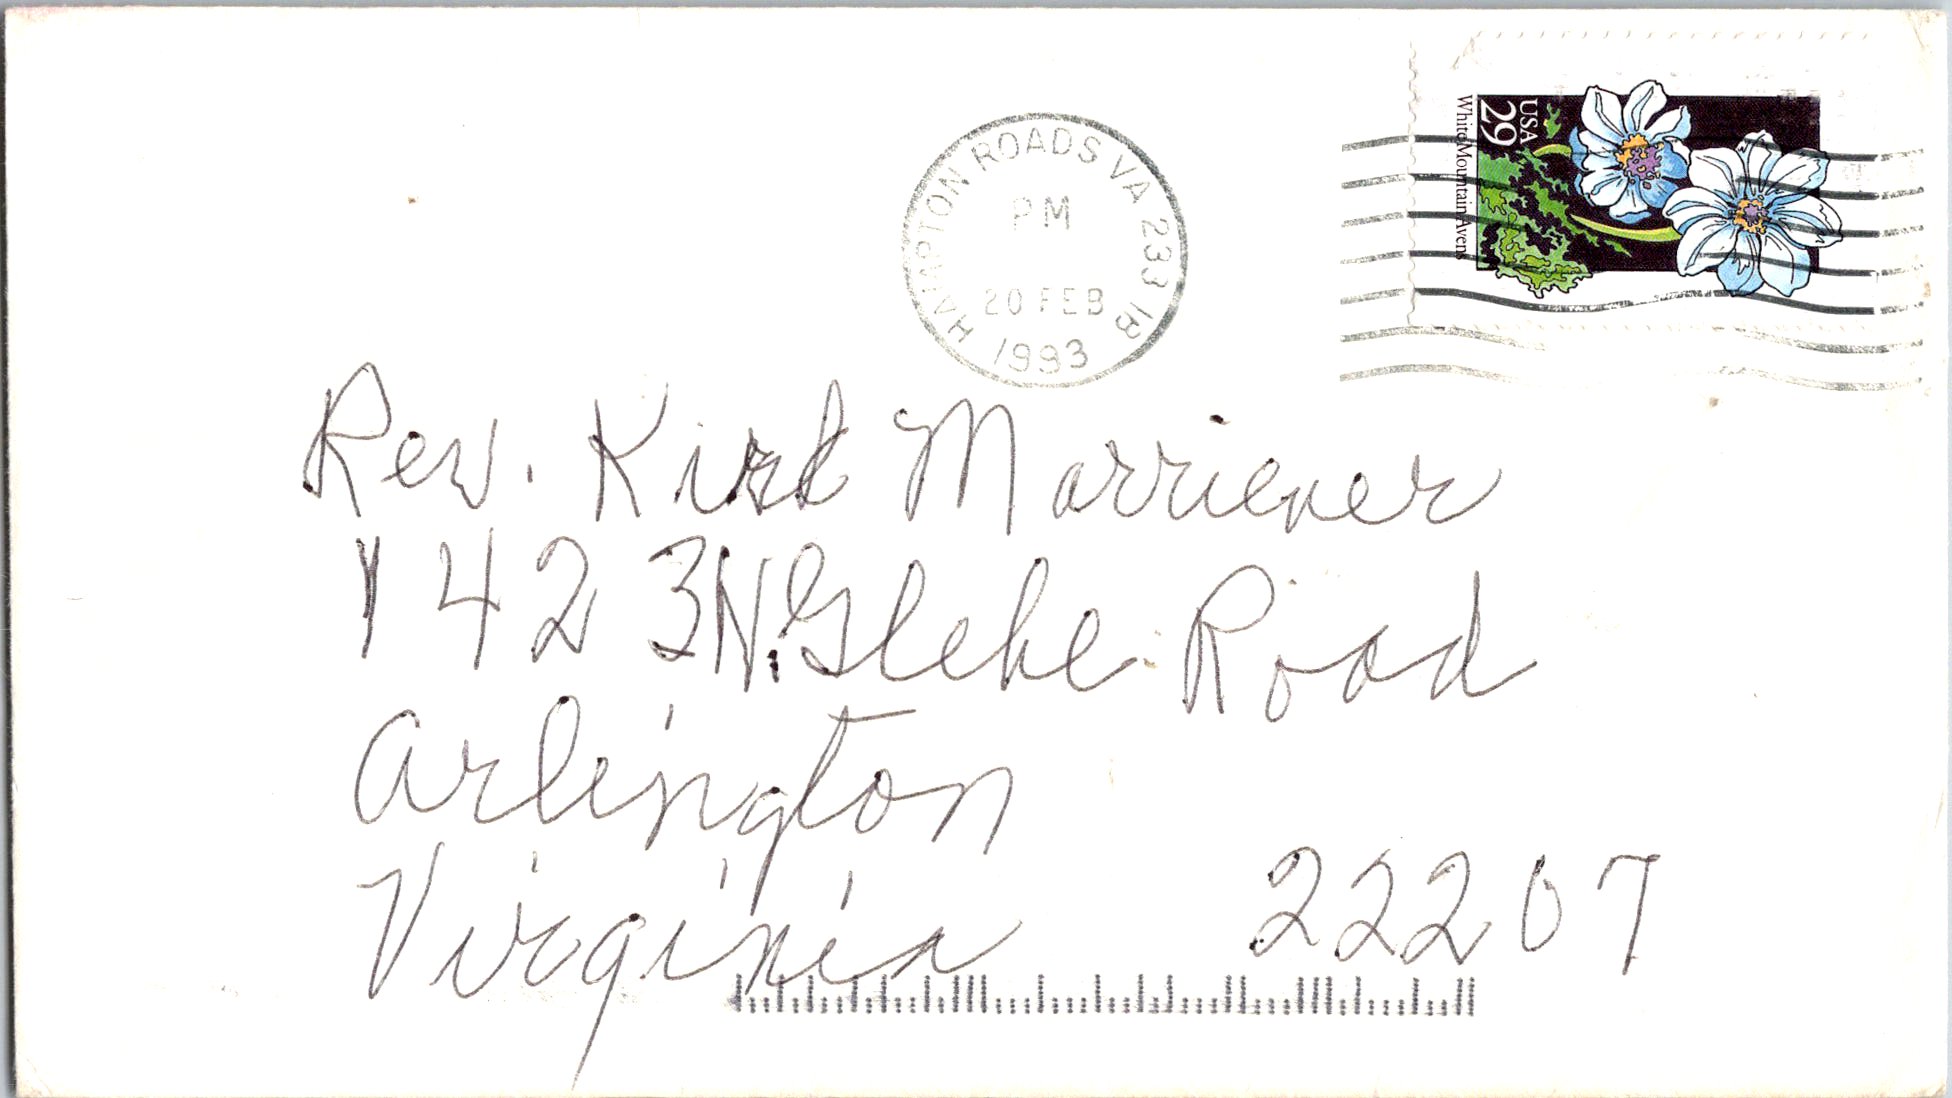 HAMPTON ROADS VA 233 1B
PM
20 FEB
1993
USA
29
White Mountain Avens
Rev. Kirk Marriener
1423 N. Glebe Road
Arlington
Virginia 22207